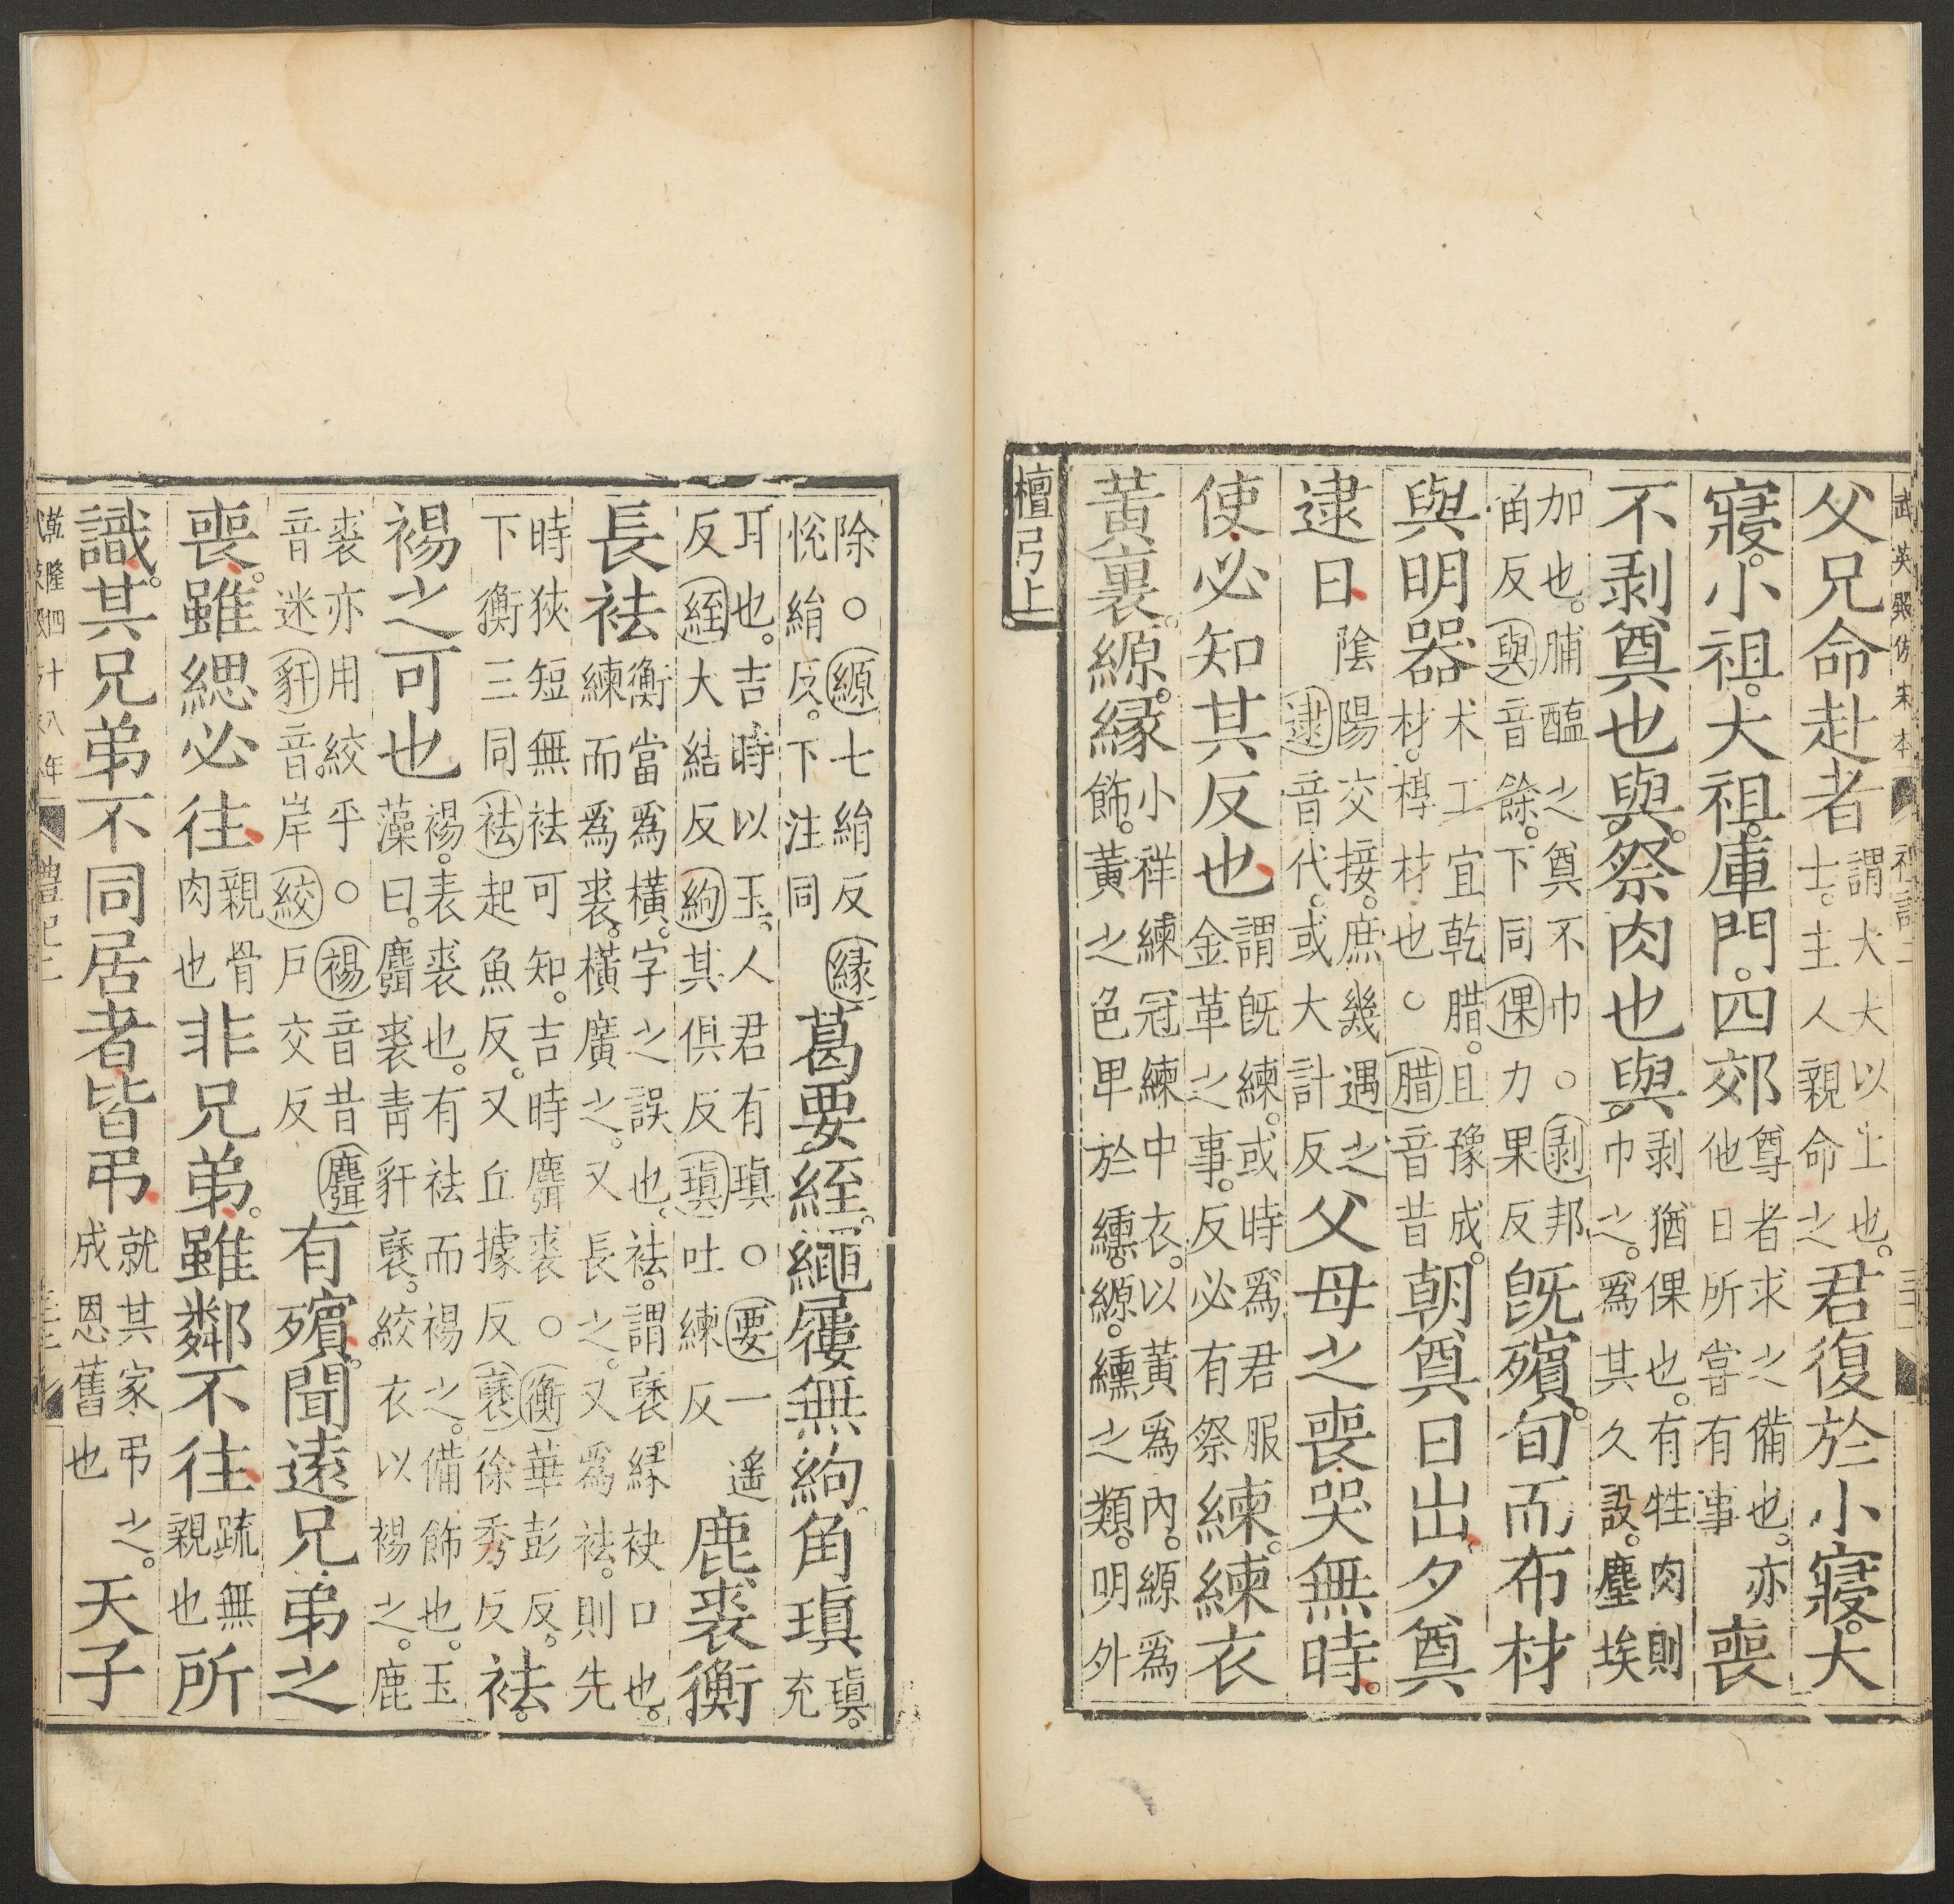 武英殿仿宋本 禮記二
父兄命赴者謂大夫以上也。士。主人親命之君復於小寢。大
寢。小祖。大祖。庫門。四郊尊者求之備也。亦他日所嘗有事喪
不剥奠也與。祭肉也與剥猶倮也。有牲肉則巾之。爲其久設。塵埃
加也。脯醢之奠不巾。○剥邦角反與音餘。下同倮力果反旣殯。旬而布材
與明器木工宜乾腊。且豫成。材。槨材也。○腊音昔朝奠日出夕奠
逮日陰陽交接。庶幾遇之逮音代。或大計反父母之喪哭無時。
使必知其反也謂旣練。或時爲君服金革之事。反必有祭練。練衣
黃裏。縓。緣小祥練冠練中衣。以黃爲內。縓爲飾。黃之色卑於纁。縓。纁之類。明外
檀弓上
除○縓七絹反緣悅絹反。下注同葛要絰。繩屨無絇。角瑱瑱。充
耳也。吉時以玉。人君有瑱○要一遙反絰大結反絇其俱反瑱吐練反鹿裘衡
長袪衡當爲橫。字之誤也。袪。謂褎緣袂口也。練而爲裘。橫廣之。又長之。又爲袪。則先
時狹短無袪可知。吉時麛裘。○衡華彭反。下衡三同袪起魚反。又丘據反褎徐秀反袪。
裼之可也裼。表裘也。有袪而裼之。備飾也。玉藻曰。麛裘青豻褎。絞衣以裼之。鹿
裘亦用絞乎。○裼音昔麛音迷豻音岸絞戶交反有殯。聞遠兄弟之
喪。雖緦必往親骨肉也非兄弟。雖鄰不往疏無親也所
識。其兄弟不同居者皆弔就其家弔之。成恩舊也天子
乾隆四十八年 禮記二